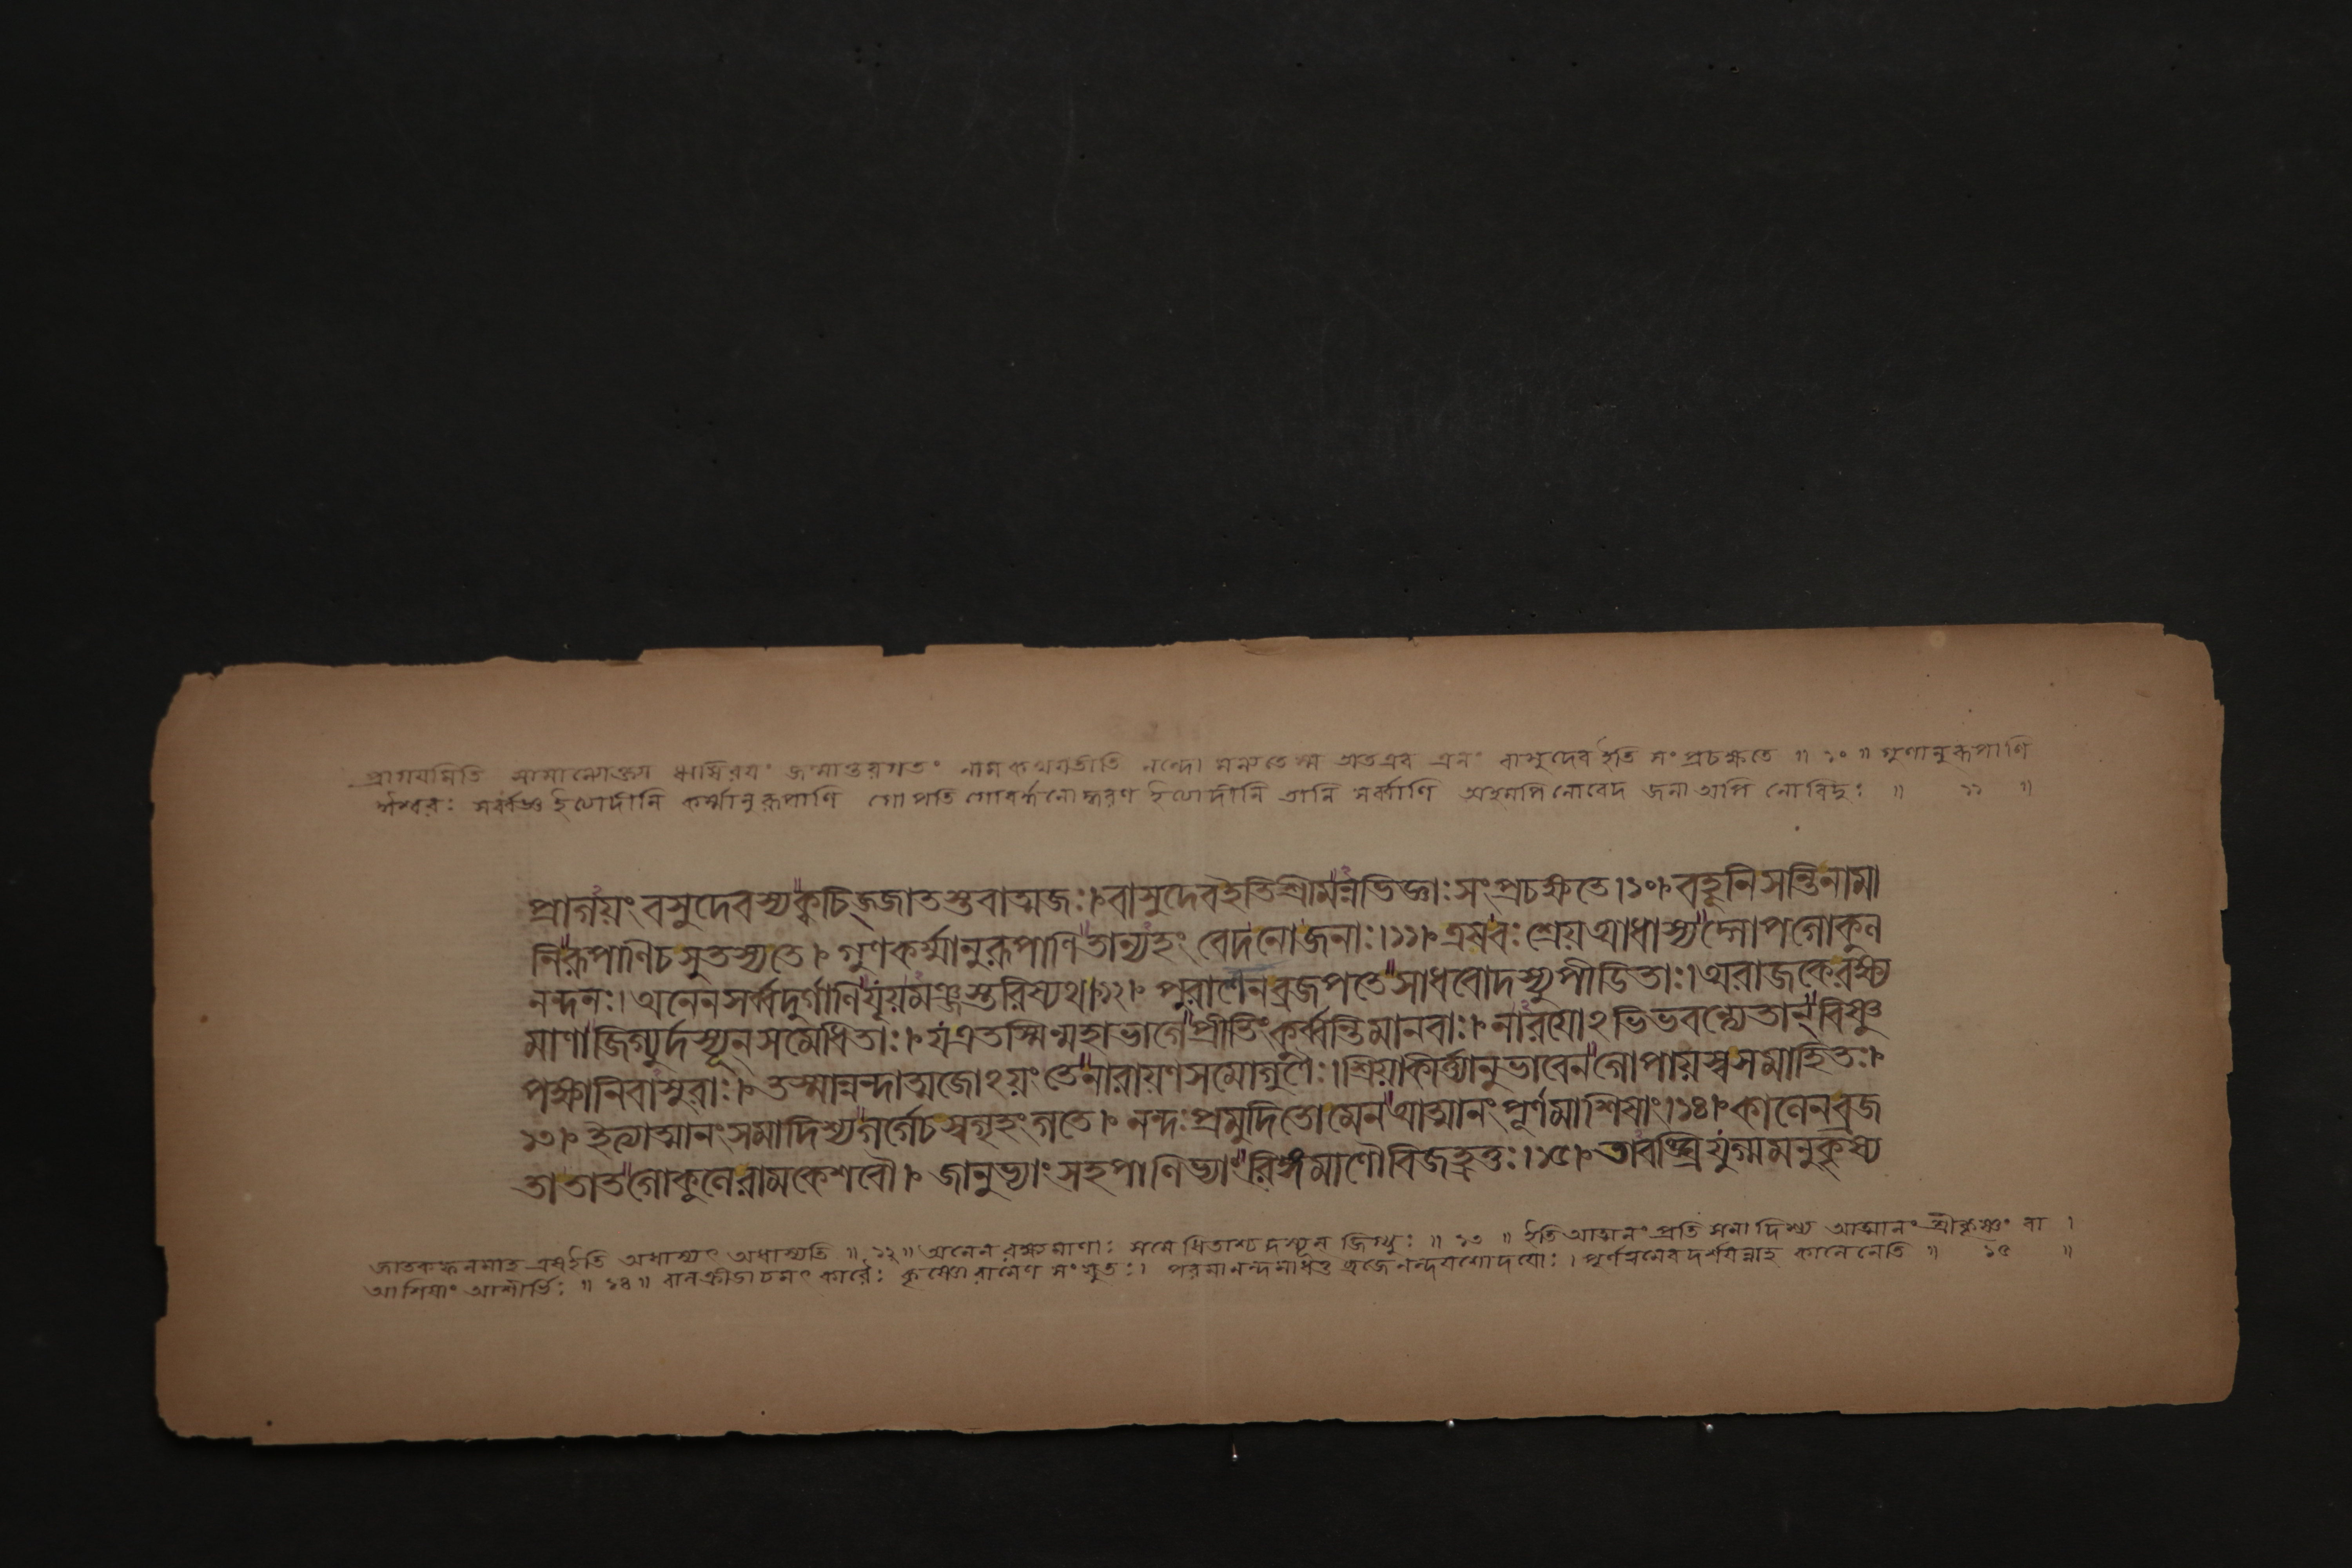 প্রাগয়মিতি সামান্যোক্ত্যা ঋষিরয়ং জন্মান্তরগতং নাম কথয়তীতি নন্দো মন্যতে স্ম অতএব এনং বাসুদেব ইতি সংপ্রচক্ষতে ॥ ১০ ॥ গুণানুরূপাণি
ঈশ্বরঃ সর্ব্বজ্ঞ ইত্যাদীনি কর্ম্মানুরূপাণি গোপতি গোবর্দ্ধনোদ্ধরণ ইত্যাদীনি তানি সর্ব্বাণি অহমপি নোবেদ জনা অপি নো বিদুঃ ॥ ১১ ॥
প্রাগয়ং বসুদেবস্য ক্বচিজ্জাতস্তবাত্মজঃ। বাসুদেব ইতি শ্রীমন্নভিজ্ঞাঃ সংপ্রচক্ষতে।১০। বহূনি সন্তি নামা
নি রূপাণি চ সুতস্য তে। গুণকর্ম্মানুরূপাণি তান্যহং বেদ নো জনাঃ।১১। এষ বঃ শ্রেয় আধাস্যদ্গোপগোকুল
নন্দনঃ। অনেন সর্ব্বদুর্গাণি যূয়মঞ্জস্তরিষ্যথ।১২। পুরানেন ব্রজপতে সাধবো দস্যুপীডিতাঃ। অরাজকে রক্ষ্য
মাণা জিগ্যুর্দস্যূন সমেধিতাঃ। য এতস্মিন্মহাভাগে প্রীতিং কুর্ব্বন্তি মানবাঃ। নারয়োঽভিভবন্ত্যেতান্ বিষ্ণু
পক্ষানিবাসুরাঃ। তস্মান্নন্দাত্মজোঽয়ং তে নারায়ণসমো গুণৈঃ। শ্রিয়া কীর্ত্ত্যানুভাবেন গোপায়স্ব সমাহিতঃ।
১৩। ইত্যাত্মানং সমাদিশ্য গর্গে চ স্বগৃহং গতে। নন্দঃ প্রমুদিতো মেন আত্মানং পূর্ণমাশিষাং।১৪। কালেন ব্রজ
তা তাত গোকুলে রামকেশবৌ। জানুভ্যাং সহ পাণিভ্যাং রিঙ্গমাণৌ বিজহ্রতুঃ।১৫। তাবঙ্ঘ্রিযুগ্মমনুকৃষ্য
জাতকফলমাহ এষ ইতি অধাস্যৎ অধাস্যতি ॥ ১২ ॥ অনেন রক্ষ্যমাণাঃ সমেধিতাশ্চ দস্যূন জিগ্যুঃ ॥ ১৩ ॥ ইতি আত্মানং প্রতি সমাদিশ্য আত্মানং শ্রীকৃষ্ণং বা ।
আশিষাং আশীর্ভিঃ ॥ ১৪ ॥ কৃষ্ণো রামেণ সংযুতঃ। ব্রজে নন্দযশোদয়োঃ। দর্শয়ন্নাহ কালেনেতি ॥ ১৫ ॥